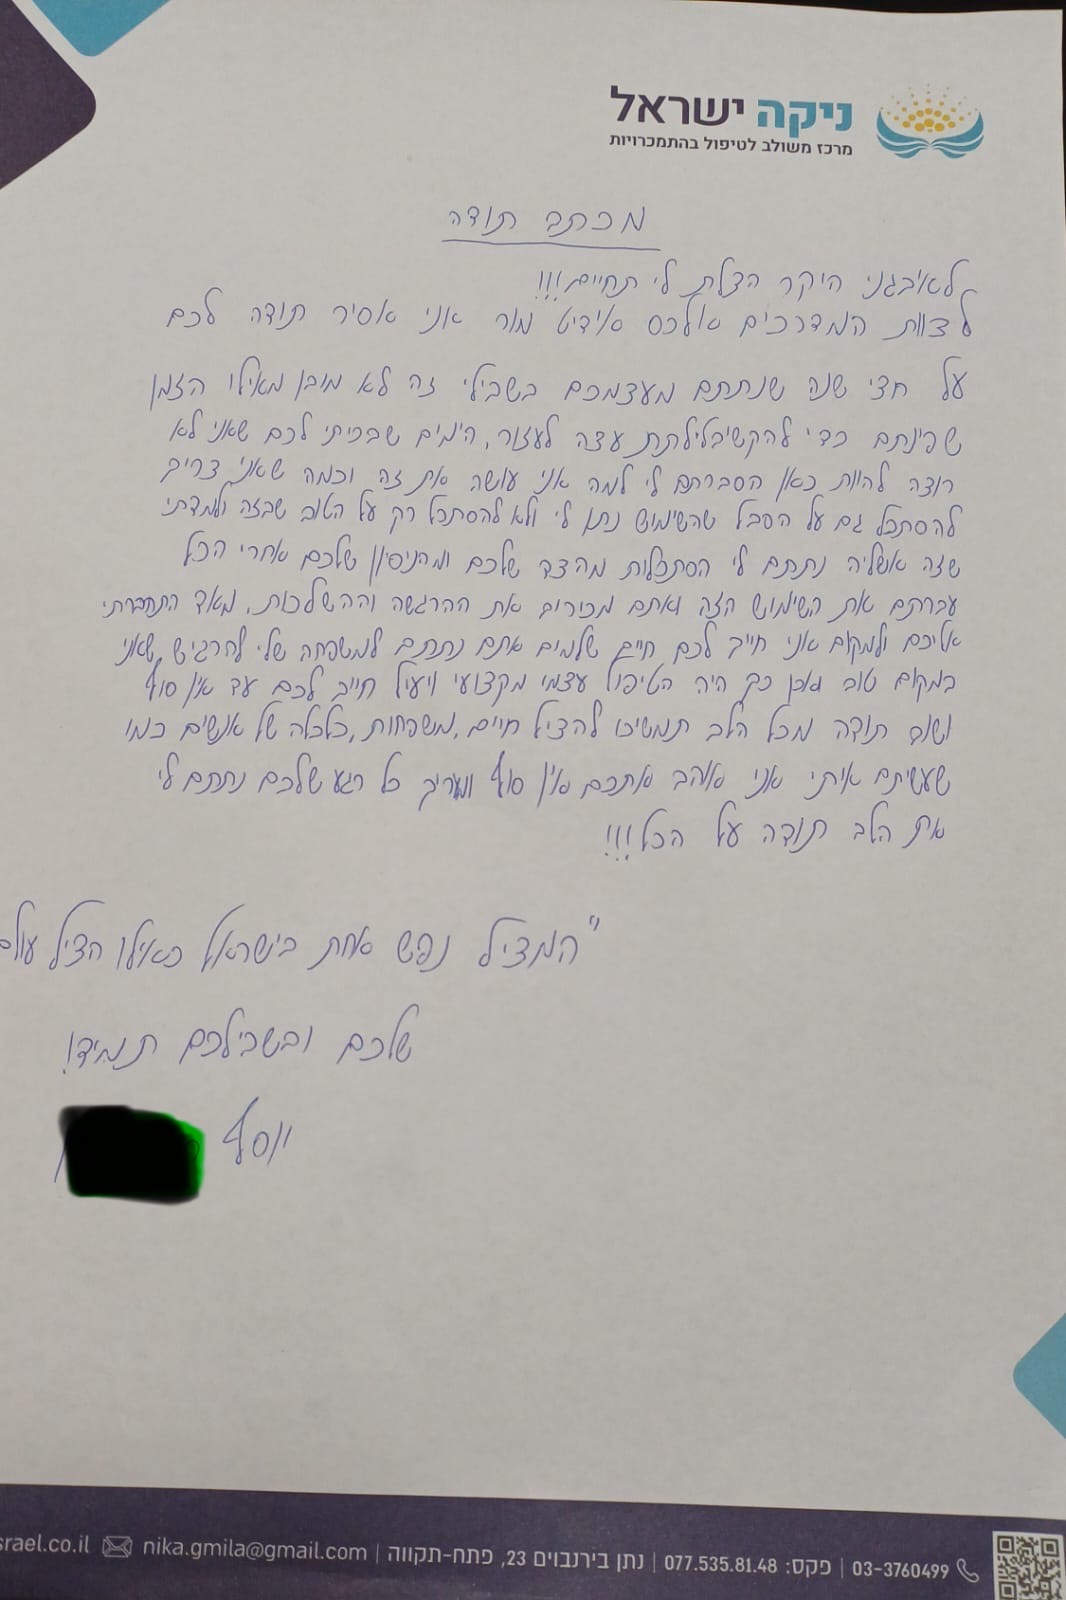 ניקה ישראל
מרכז משולב לטיפול בהתמכרויות
מכתב תודה
לאיבגני היקר הצלת לי תחיים!!!
לצוות המדרכים אלכס אידיט מור אני אסיר תודה לכם
על חצי שנה שנתתם מעצמכם בשבילי זה לא מובן מאילו הזמן
שפינתם כדי להקשיב לתת עצה לעזור, הימים שבכיתי לכם שאני לא
רוצה להיות כאן הסברתם לי למה אני עושה את זה וכמה שאני צריך
להסתכל גם על הסבל שהשימוש נתן לי ולא להסתכל רק על הטוב שבזה ולמדתי
שזה אשליה נתתם לי הסתכלות מהצד שלכם ומהניסיון שלכם אחרי הכל
עברתם את השימוש הזה ואתם מכירים את ההרגשה וההשלכות, מאד התחברתי
אליכם ולמקום אני חייב לכם חיים שלמים אתם נתתם למשפחה שלי להרגיש שאני
במקום טוב ואכן כך היה הטיפול עצמי מקצועי ויעיל חייב לכם עד אין סוף
ושוב תודה מכל הלב תמשיכו להציל חיים, משפחות, כלכלה של אנשים כמו
שעשיתם איתי אני אוהב אתכם אין סוף ומעריך כל רגע שלכם נתתם לי
את הלב תודה על הכל!!!
"המציל נפש אחת בישראל כאילו הציל עולם
שלכם ובשבילכם תמיד!
יוסף
03-3760499 | פקס: 077.535.81.48 | נתן בירנבוים 23, פתח-תקווה | nika.gmila@gmail.com srael.co.il